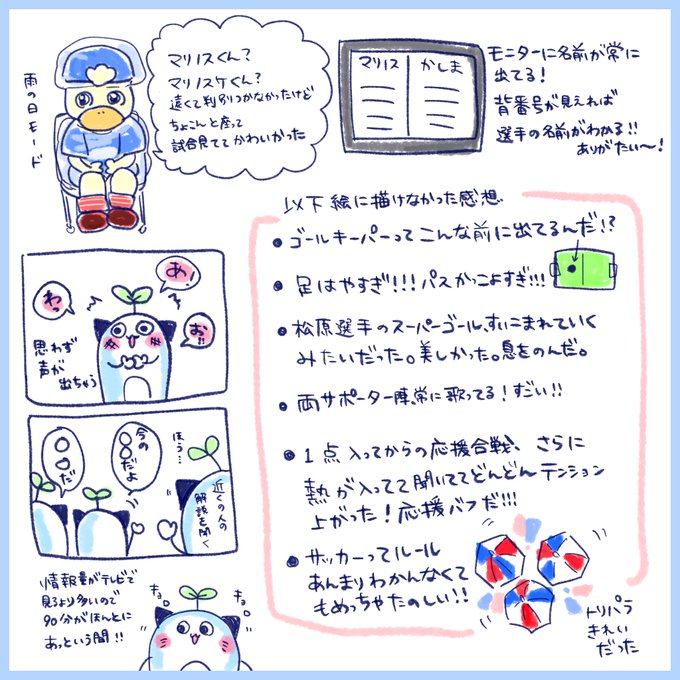 雨の日モード
マリノスくん?
マリノスケくん?
遠くて判別つかなかったけど
ちょこんと座って
試合見ててかわいかった
マリノス
かしま
モニターに名前が常に
出てる!
背番号が見えれば
選手の名前がわかる!!
ありがたい〜!
以下 絵に描けなかった感想
•ゴールキーパーってこんな前に出てるんだ!?
•足はやすぎ!!!パスかっこよすぎ!!!
•松原選手のスーパーゴール、すいこまれていく
みたいだった。美しかった。息をのんだ。
•両サポーター陣、常に歌ってる!すごい!!
•1点入ってからの応援合戦、さらに
熱が入ってて聞いててどんどんテンション
上がった!応援バフだ!!!
•サッカーってルール
あんまりわかんなくて
もめっちゃたのしい!!
トリパラ
きれい
だった
あ!
わっ
お!!
思わず
声が
出ちゃう
ほう…
今の
〇〇だよ
〇〇だ
近くの人の
解説を聞く
情報量がテレビで
見るより多いので
90分がほんとに
あっという間!!
キョロ
キョロ